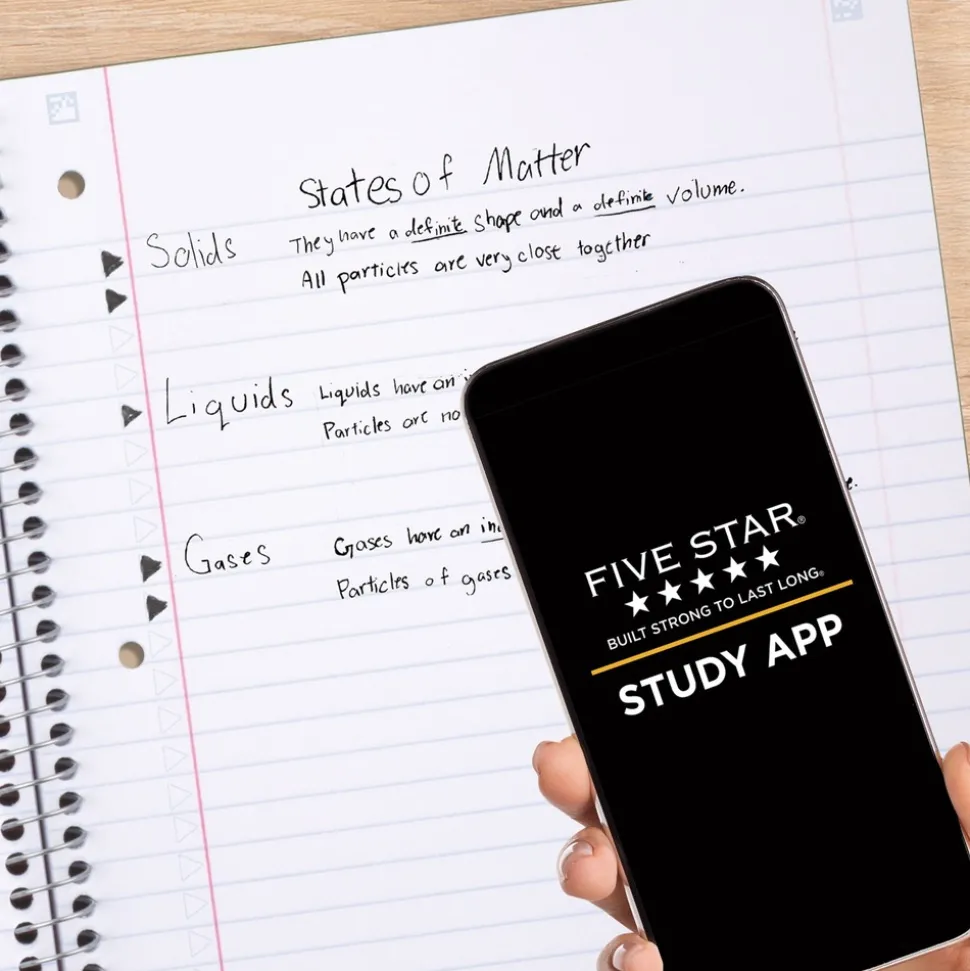 States of Matter
Solids They have a definite shape and a definite volume.
All particles are very close together
Liquids Liquids have an
Particles are
Gases Gases have an
Particles of gases
FIVE STAR®
BUILT STRONG TO LAST LONG®
STUDY APP